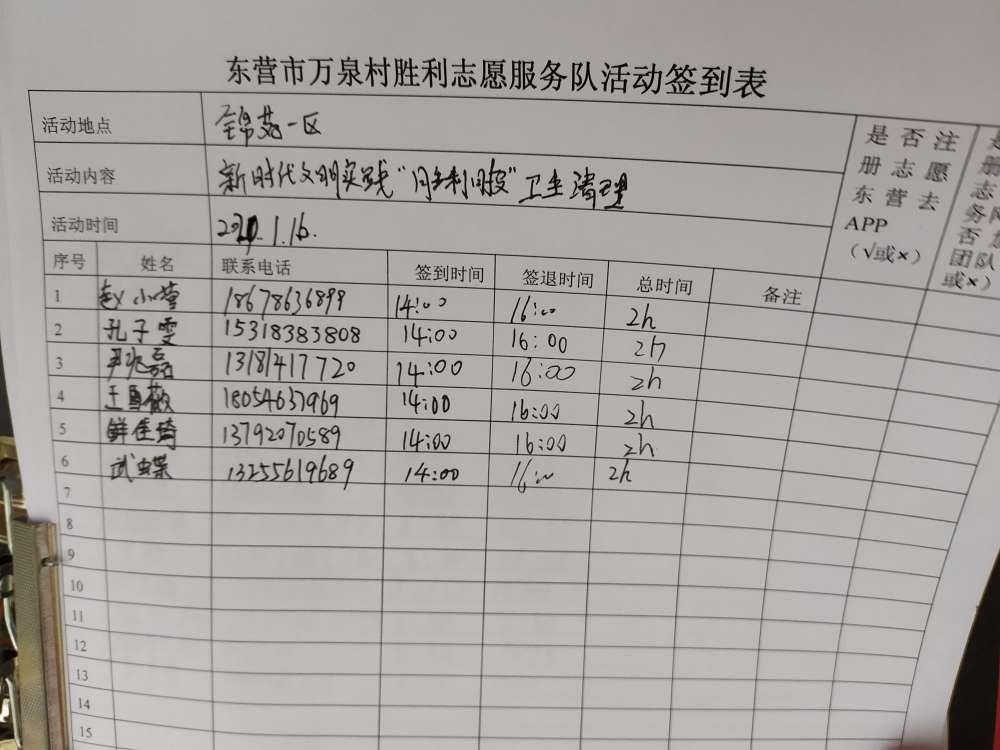 东营市万泉村胜利志愿服务队活动签到表
活动地点 锦苑一区
活动内容 新时代文明实践" "卫生清理
活动时间 1.16.
是否注册志愿东营去APP（√或×）
序号 姓名 联系电话 签到时间 签退时间 总时间 备注
1 赵小莹 18678636899 14:00 16:00 2h
2 孔子雯 15318383808 14:00 16:00 2h
3 尹兆磊 13181417720 14:00 16:00 2h
4 王 18054637969 14:00 16:00 2h
5 鲜佳琦 13792070589 14:00 16:00 2h
6 武蝶 13255619689 14:00 16:00 2h
7
8
9
10
11
12
13
14
15